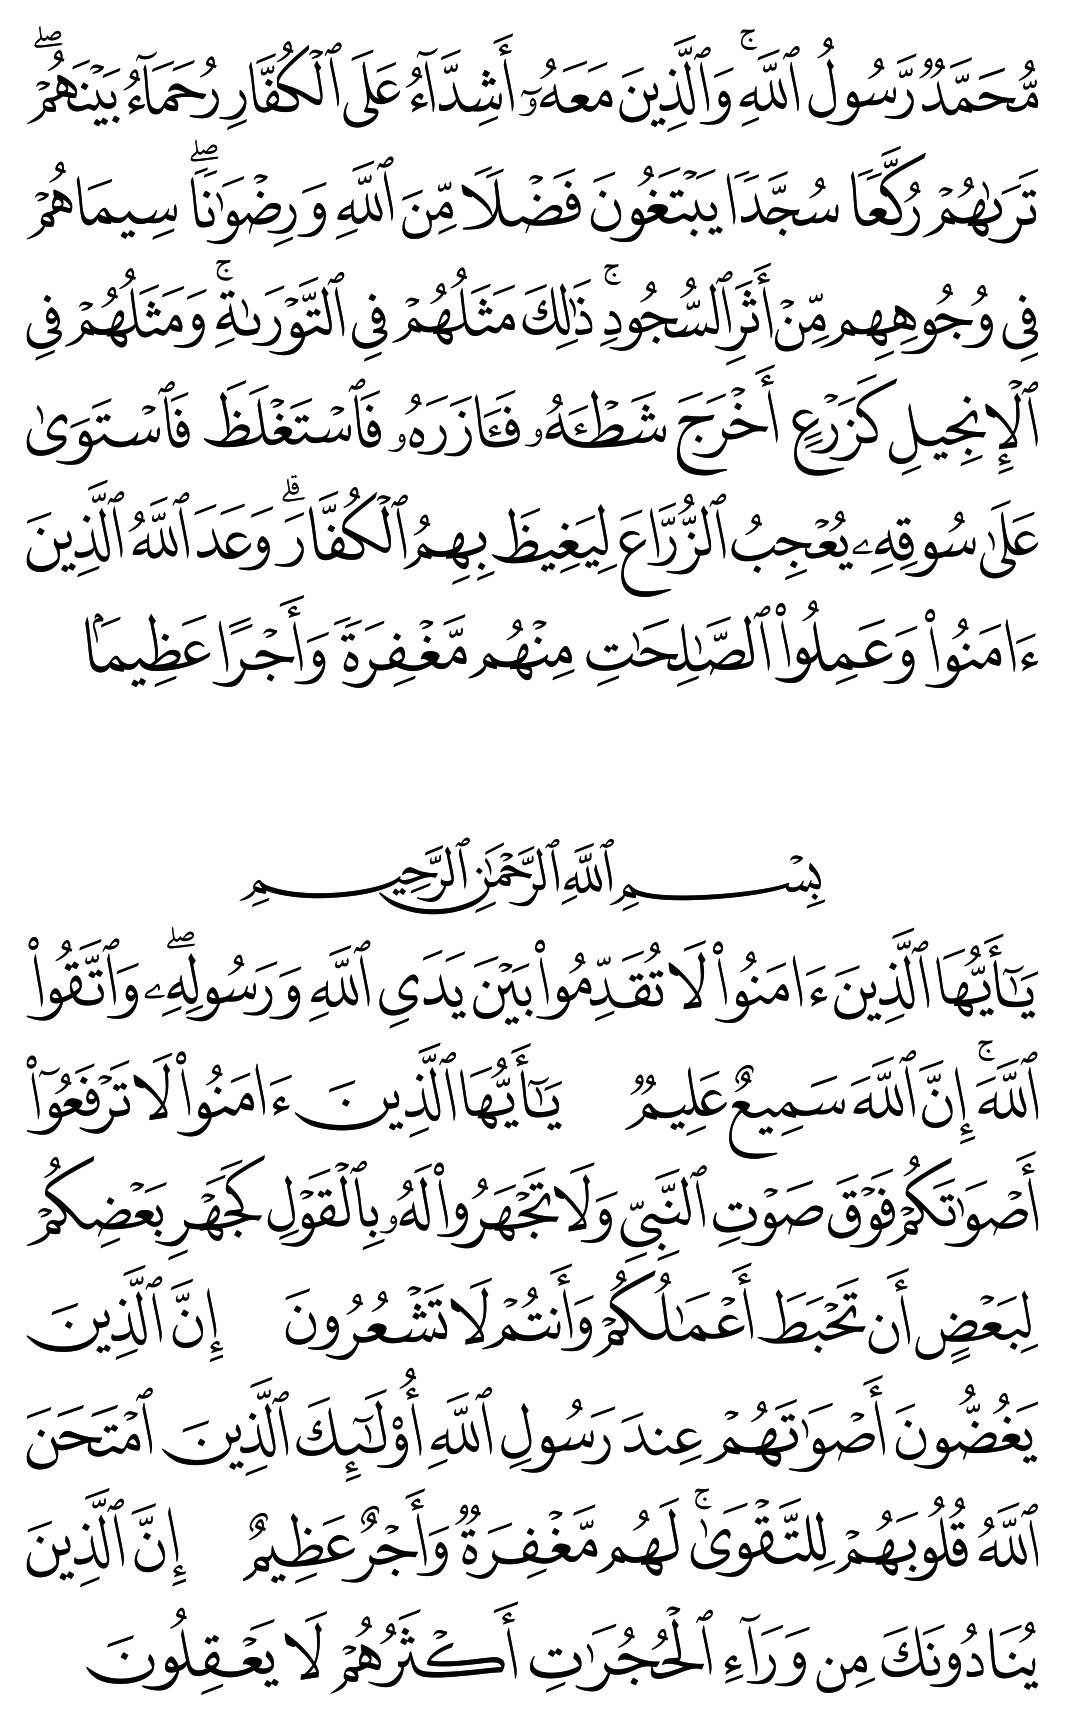 مُّحَمَّدٌ رَّسُولُ ٱللَّهِۚ وَٱلَّذِينَ مَعَهُۥٓ أَشِدَّآءُ عَلَى ٱلۡكُفَّارِ رُحَمَآءُ بَيۡنَهُمۡۖ
تَرَىٰهُمۡ رُكَّعٗا سُجَّدٗا يَبۡتَغُونَ فَضۡلٗا مِّنَ ٱللَّهِ وَرِضۡوَٰنٗاۖ سِيمَاهُمۡ
فِي وُجُوهِهِم مِّنۡ أَثَرِ ٱلسُّجُودِۚ ذَٰلِكَ مَثَلُهُمۡ فِي ٱلتَّوۡرَىٰةِۚ وَمَثَلُهُمۡ فِي
ٱلۡإِنجِيلِ كَزَرۡعٍ أَخۡرَجَ شَطۡـَٔهُۥ فَـَٔازَرَهُۥ فَٱسۡتَغۡلَظَ فَٱسۡتَوَىٰ
عَلَىٰ سُوقِهِۦ يُعۡجِبُ ٱلزُّرَّاعَ لِيَغِيظَ بِهِمُ ٱلۡكُفَّارَۗ وَعَدَ ٱللَّهُ ٱلَّذِينَ
ءَامَنُواْ وَعَمِلُواْ ٱلصَّٰلِحَٰتِ مِنۡهُم مَّغۡفِرَةٗ وَأَجۡرًا عَظِيمَۢا
بِسۡمِ ٱللَّهِ ٱلرَّحۡمَٰنِ ٱلرَّحِيمِ
يَٰٓأَيُّهَا ٱلَّذِينَ ءَامَنُواْ لَا تُقَدِّمُواْ بَيۡنَ يَدَيِ ٱللَّهِ وَرَسُولِهِۦۖ وَٱتَّقُواْ
ٱللَّهَۚ إِنَّ ٱللَّهَ سَمِيعٌ عَلِيمٞ يَٰٓأَيُّهَا ٱلَّذِينَ ءَامَنُواْ لَا تَرۡفَعُوٓاْ
أَصۡوَٰتَكُمۡ فَوۡقَ صَوۡتِ ٱلنَّبِيِّ وَلَا تَجۡهَرُواْ لَهُۥ بِٱلۡقَوۡلِ كَجَهۡرِ بَعۡضِكُمۡ
لِبَعۡضٍ أَن تَحۡبَطَ أَعۡمَٰلُكُمۡ وَأَنتُمۡ لَا تَشۡعُرُونَ إِنَّ ٱلَّذِينَ
يَغُضُّونَ أَصۡوَٰتَهُمۡ عِندَ رَسُولِ ٱللَّهِ أُوْلَٰٓئِكَ ٱلَّذِينَ ٱمۡتَحَنَ
ٱللَّهُ قُلُوبَهُمۡ لِلتَّقۡوَىٰۚ لَهُم مَّغۡفِرَةٞ وَأَجۡرٌ عَظِيمٌ إِنَّ ٱلَّذِينَ
يُنَادُونَكَ مِن وَرَآءِ ٱلۡحُجُرَٰتِ أَكۡثَرُهُمۡ لَا يَعۡقِلُونَ